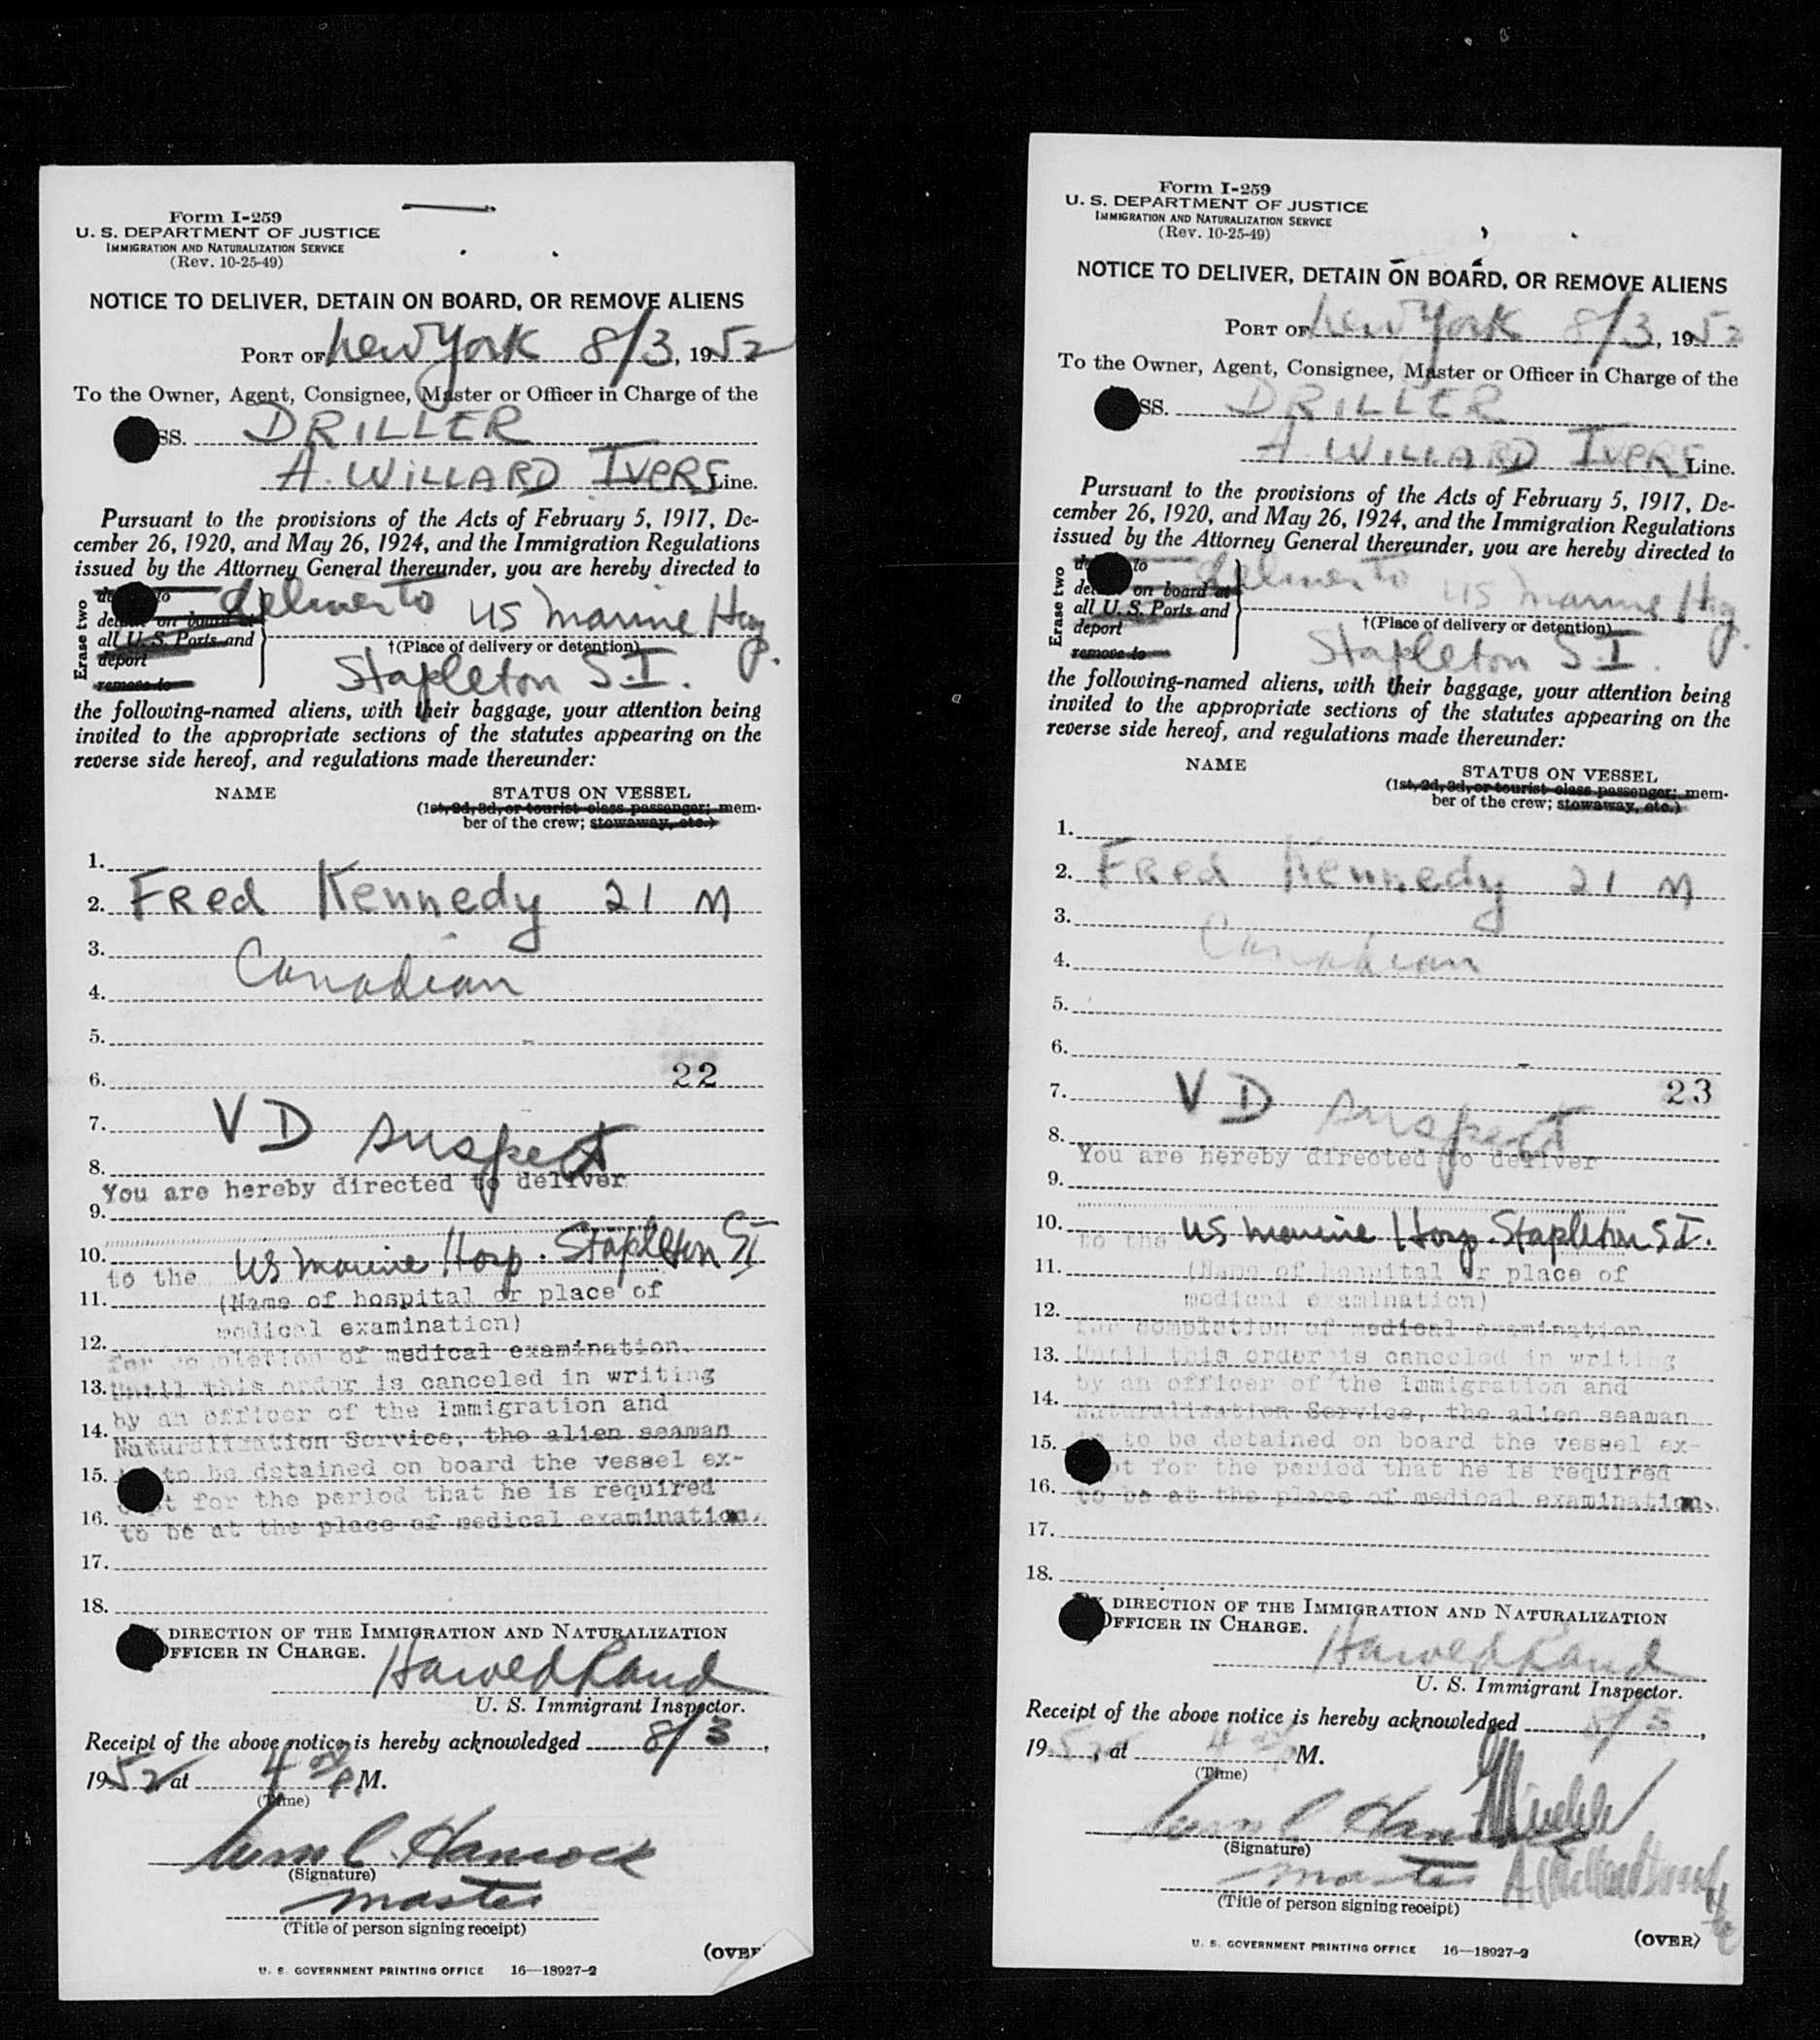 Form I-259
U. S. DEPARTMENT OF JUSTICE
IMMIGRATION AND NATURALIZATION SERVICE
(Rev. 10-25-49)
NOTICE TO DELIVER, DETAIN ON BOARD, OR REMOVE ALIENS
PORT OF New York 8/3, 1952
To the Owner, Agent, Consignee, Master or Officer in Charge of the
SS. DRILLER
A. WILLARD IVERS Line.
Pursuant to the provisions of the Acts of February 5, 1917, De-
cember 26, 1920, and May 26, 1924, and the Immigration Regulations
issued by the Attorney General thereunder, you are hereby directed to
Erase two
to
on board at
all U. S. Ports and
deport
remove to
deliver to US Marine Hosp.
†(Place of delivery or detention)
Stapleton S.I.
the following-named aliens, with their baggage, your attention being
invited to the appropriate sections of the statutes appearing on the
reverse side hereof, and regulations made thereunder:
NAME STATUS ON VESSEL
(1st, 2d, 3d, or tourist class passenger; mem-
ber of the crew; stowaway, etc.)
1.
2. Fred Kennedy 21 M
3.
Canadian
4.
5.
6. 22
7. VD suspect
8.
You are hereby directed to deliver
9.
10.
to the US Marine Hosp. Stapleton SI
11. (Name of hospital or place of
medical examination)
12.
for completion of medical examination.
13. Until this order is canceled in writing
by an officer of the Immigration and
14. Naturalization Service, the alien seaman
15. to be detained on board the vessel ex-
for the period that he is required
16. to be at the place of medical examination.
17.
18.
DIRECTION OF THE IMMIGRATION AND NATURALIZATION
OFFICER IN CHARGE.
Harold Rand
U. S. Immigrant Inspector.
Receipt of the above notice is hereby acknowledged 8/3,
1952 at 4 00 P.M.
(Time)
Wm C. Hancock
(Signature)
master
(Title of person signing receipt)
(OVER
U. S. GOVERNMENT PRINTING OFFICE 16—18927-2
Form I-259
U. S. DEPARTMENT OF JUSTICE
IMMIGRATION AND NATURALIZATION SERVICE
(Rev. 10-25-49)
NOTICE TO DELIVER, DETAIN ON BOARD, OR REMOVE ALIENS
PORT OF New York 8/3, 1952
To the Owner, Agent, Consignee, Master or Officer in Charge of the
SS. DRILLER
A. WILLARD IVERS Line.
Pursuant to the provisions of the Acts of February 5, 1917, De-
cember 26, 1920, and May 26, 1924, and the Immigration Regulations
issued by the Attorney General thereunder, you are hereby directed to
Erase two
to
on board at
all U. S. Ports and
deport
remove to
deliver to US Marine Hosp.
†(Place of delivery or detention)
Stapleton S.I.
the following-named aliens, with their baggage, your attention being
invited to the appropriate sections of the statutes appearing on the
reverse side hereof, and regulations made thereunder:
NAME STATUS ON VESSEL
(1st, 2d, 3d, or tourist class passenger; mem-
ber of the crew; stowaway, etc.)
1.
2. Fred Kennedy 21 M
3.
Canadian
4.
5.
6.
7. VD suspect 23
8.
You are hereby directed to deliver
9.
10.
to the US Marine Hosp. Stapleton S I.
11. (Name of hospital or place of
medical examination)
12.
for completion of medical examination.
13. Until this order is canceled in writing
by an officer of the Immigration and
14. Naturalization Service, the alien seaman
15. to be detained on board the vessel ex-
for the period that he is required
16. to be at the place of medical examination.
17.
18.
DIRECTION OF THE IMMIGRATION AND NATURALIZATION
OFFICER IN CHARGE.
Harold Rand
U. S. Immigrant Inspector.
Receipt of the above notice is hereby acknowledged 8/3,
1952, at 4 00 P M.
(Time)
Wm C. Hancock
(Signature)
master
(Title of person signing receipt)
(OVER)
U. S. GOVERNMENT PRINTING OFFICE 16—18927-2